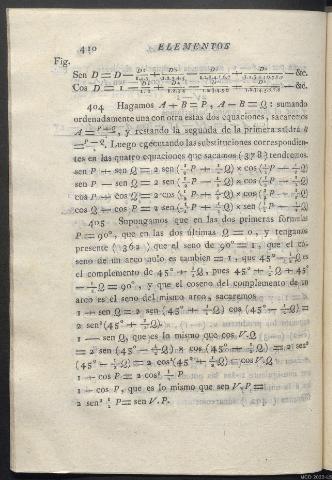 410 ELEMENTOS
Fig.
Sen D = D — + — + — &c.
Cos D = 1 — + — + — &c.
404 Hagamos A + B = P, A — B = Q: sumando
ordenadamente una con otra estas dos equaciones, sacaremos
A = P+Q/2, y restando la segunda de la primera saldrá B
= P—Q/2. Luego egecutando las substituciones correspondien-
tes en las quatro equaciones que sacamos (378) tendremos
sen P + sen Q = 2 sen (½ P + ½ Q) × cos (½ P — ½ Q)
sen P — sen Q = 2 sen (½ P — ½ Q) × cos (½ P + ½ Q)
cos P + cos Q = 2 cos (½ P + ½ Q) × cos (½ P — ½ Q)
cos Q — cos P = 2 sen (½ P + ½ Q) × sen (½ P — ½ Q)
405 Supongamos que en las dos primeras formulas
P = 90°, que en las dos últimas Q = 0, y tengamos
presente (362) que el seno de 90° = 1, que el co-
seno de un arco nulo es tambien = 1, que 45° — ½ Q
es el complemento de 45° + ½ Q, pues 45° + ½ Q + 45°
— ½ Q = 90°, y que el coseno del complemento de un
arco es el seno del mismo arco, sacaremos
1 + sen Q = 2 sen (45° + ½ Q) cos (45° — ½ Q) =
2 sen² (45° + ½ Q).
1 — sen Q, que es lo mismo que cos V. Q
= 2 sen (45° — ½ Q) × cos (45° + ½ Q) = 2 sen²
(45° — ½ Q) = 2 cos² (45° + ½ Q) = cos V. Q
1 + cos P = 2 cos² ½ P
1 — cos P, que es lo mismo que sen V. P =
2 sen² ½ P = sen V. P.